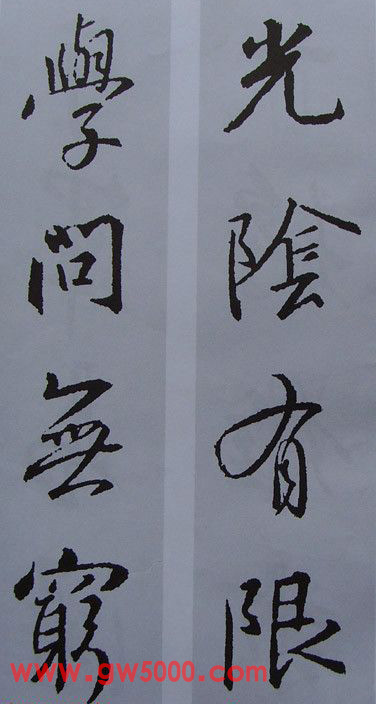 光陰有限
學問無窮
www.gw5000.com